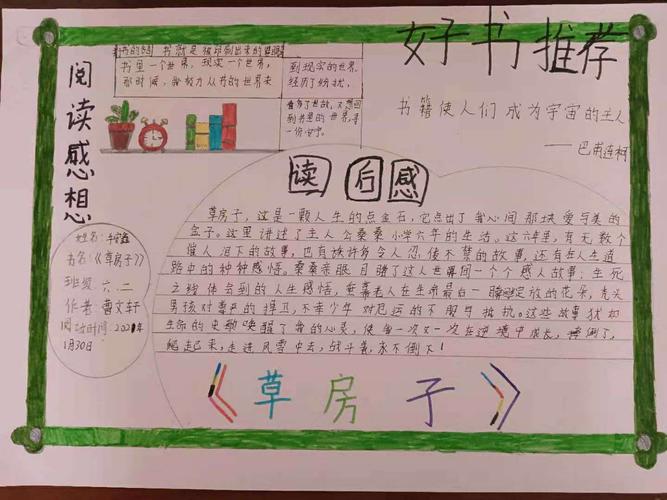 好书推荐
书籍使人们成为宇宙的主人
——巴甫连柯
阅读感想
书里一个世界,现实一个世界,
那时候,会努力从书的世界来
到现实的世界,
经历了纷扰,
看多了世故,又想回
到书里的世界,寻
一份安宁。
读后感
草房子,这是一颗人生的点金石,它点出了我心间那块爱与美的
盒子。这里讲述了主人公桑桑小学六年的生活。这六年里,有无数个
催人泪下的故事,也有许许多多令人忍俊不禁的故事,还有在人生道
路中的种种感悟。桑桑亲眼目睹了这人世界团一个个感人故事:生死
之稍体会到的人生感悟,垂暮老人在生命最后一瞬绽放的花朵,秃头
男孩对尊严的捍卫,不幸少年对厄运的不屈与抵抗。这些故事犹如
生命的史歌唤醒了我的心灵,使我一次又一次在逆境中成长,摔倒了,
爬起来,走进风雪中去,战斗着,永不倒下!
姓名:
书名:《草房子》
班级 六、二
作者 曹文轩
阅读时间 2021年
1月30日
《草房子》